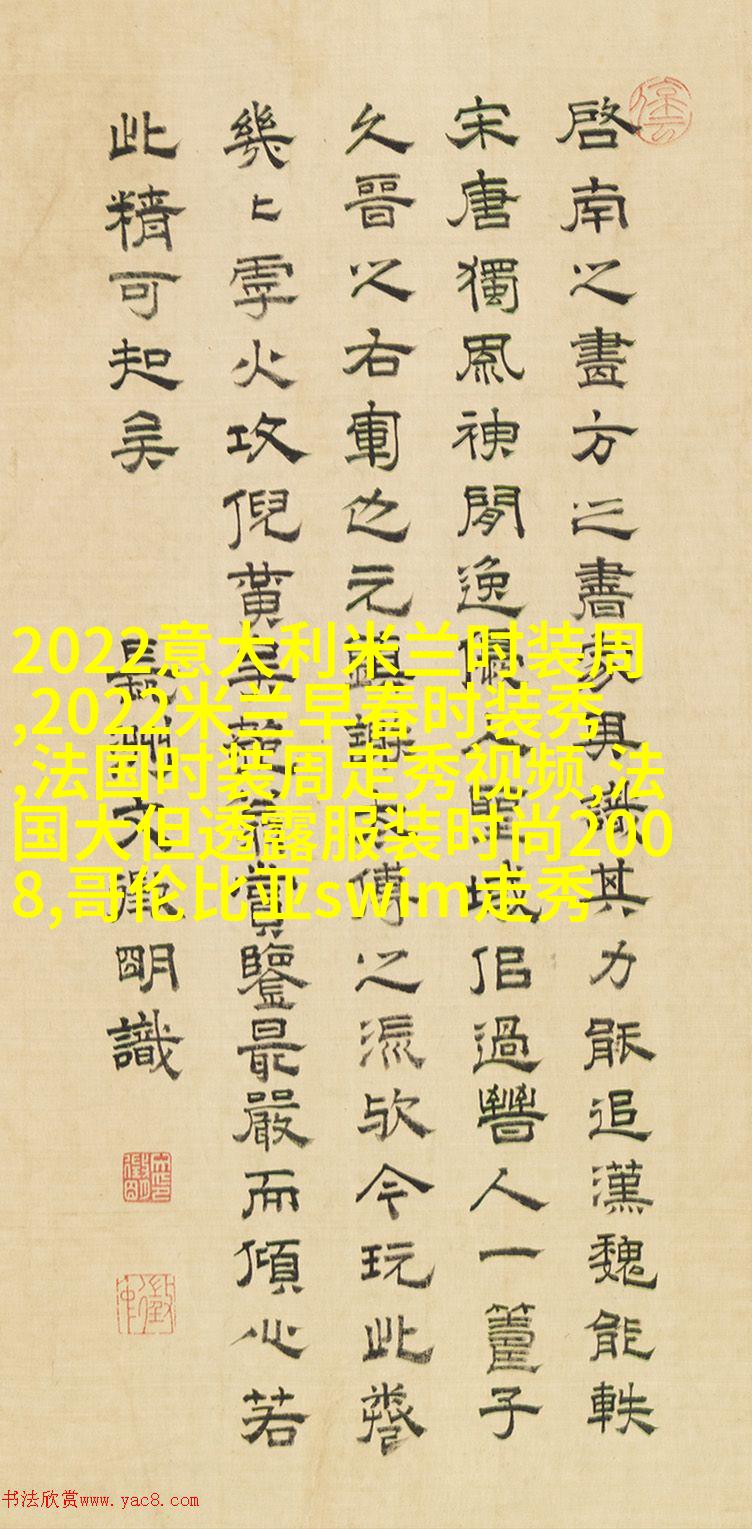 啓南之畫方之書家具其力能追漢魏能軼
宋唐獨風神閒逸優人聖域但過晉人一籌子
久晉之右軍也元鎮謝傅之流歟今玩此卷
幾〻乎火攻倪黃賞鑒最嚴而傾心若
此精可知矣
文徵明識
2022意大利米兰时装周
,2022米兰早春时装秀
,法国时装周走秀视频,法
国大但透露服装时尚200
8,哥伦比亚swim走秀
书法欣赏www.yac8.com